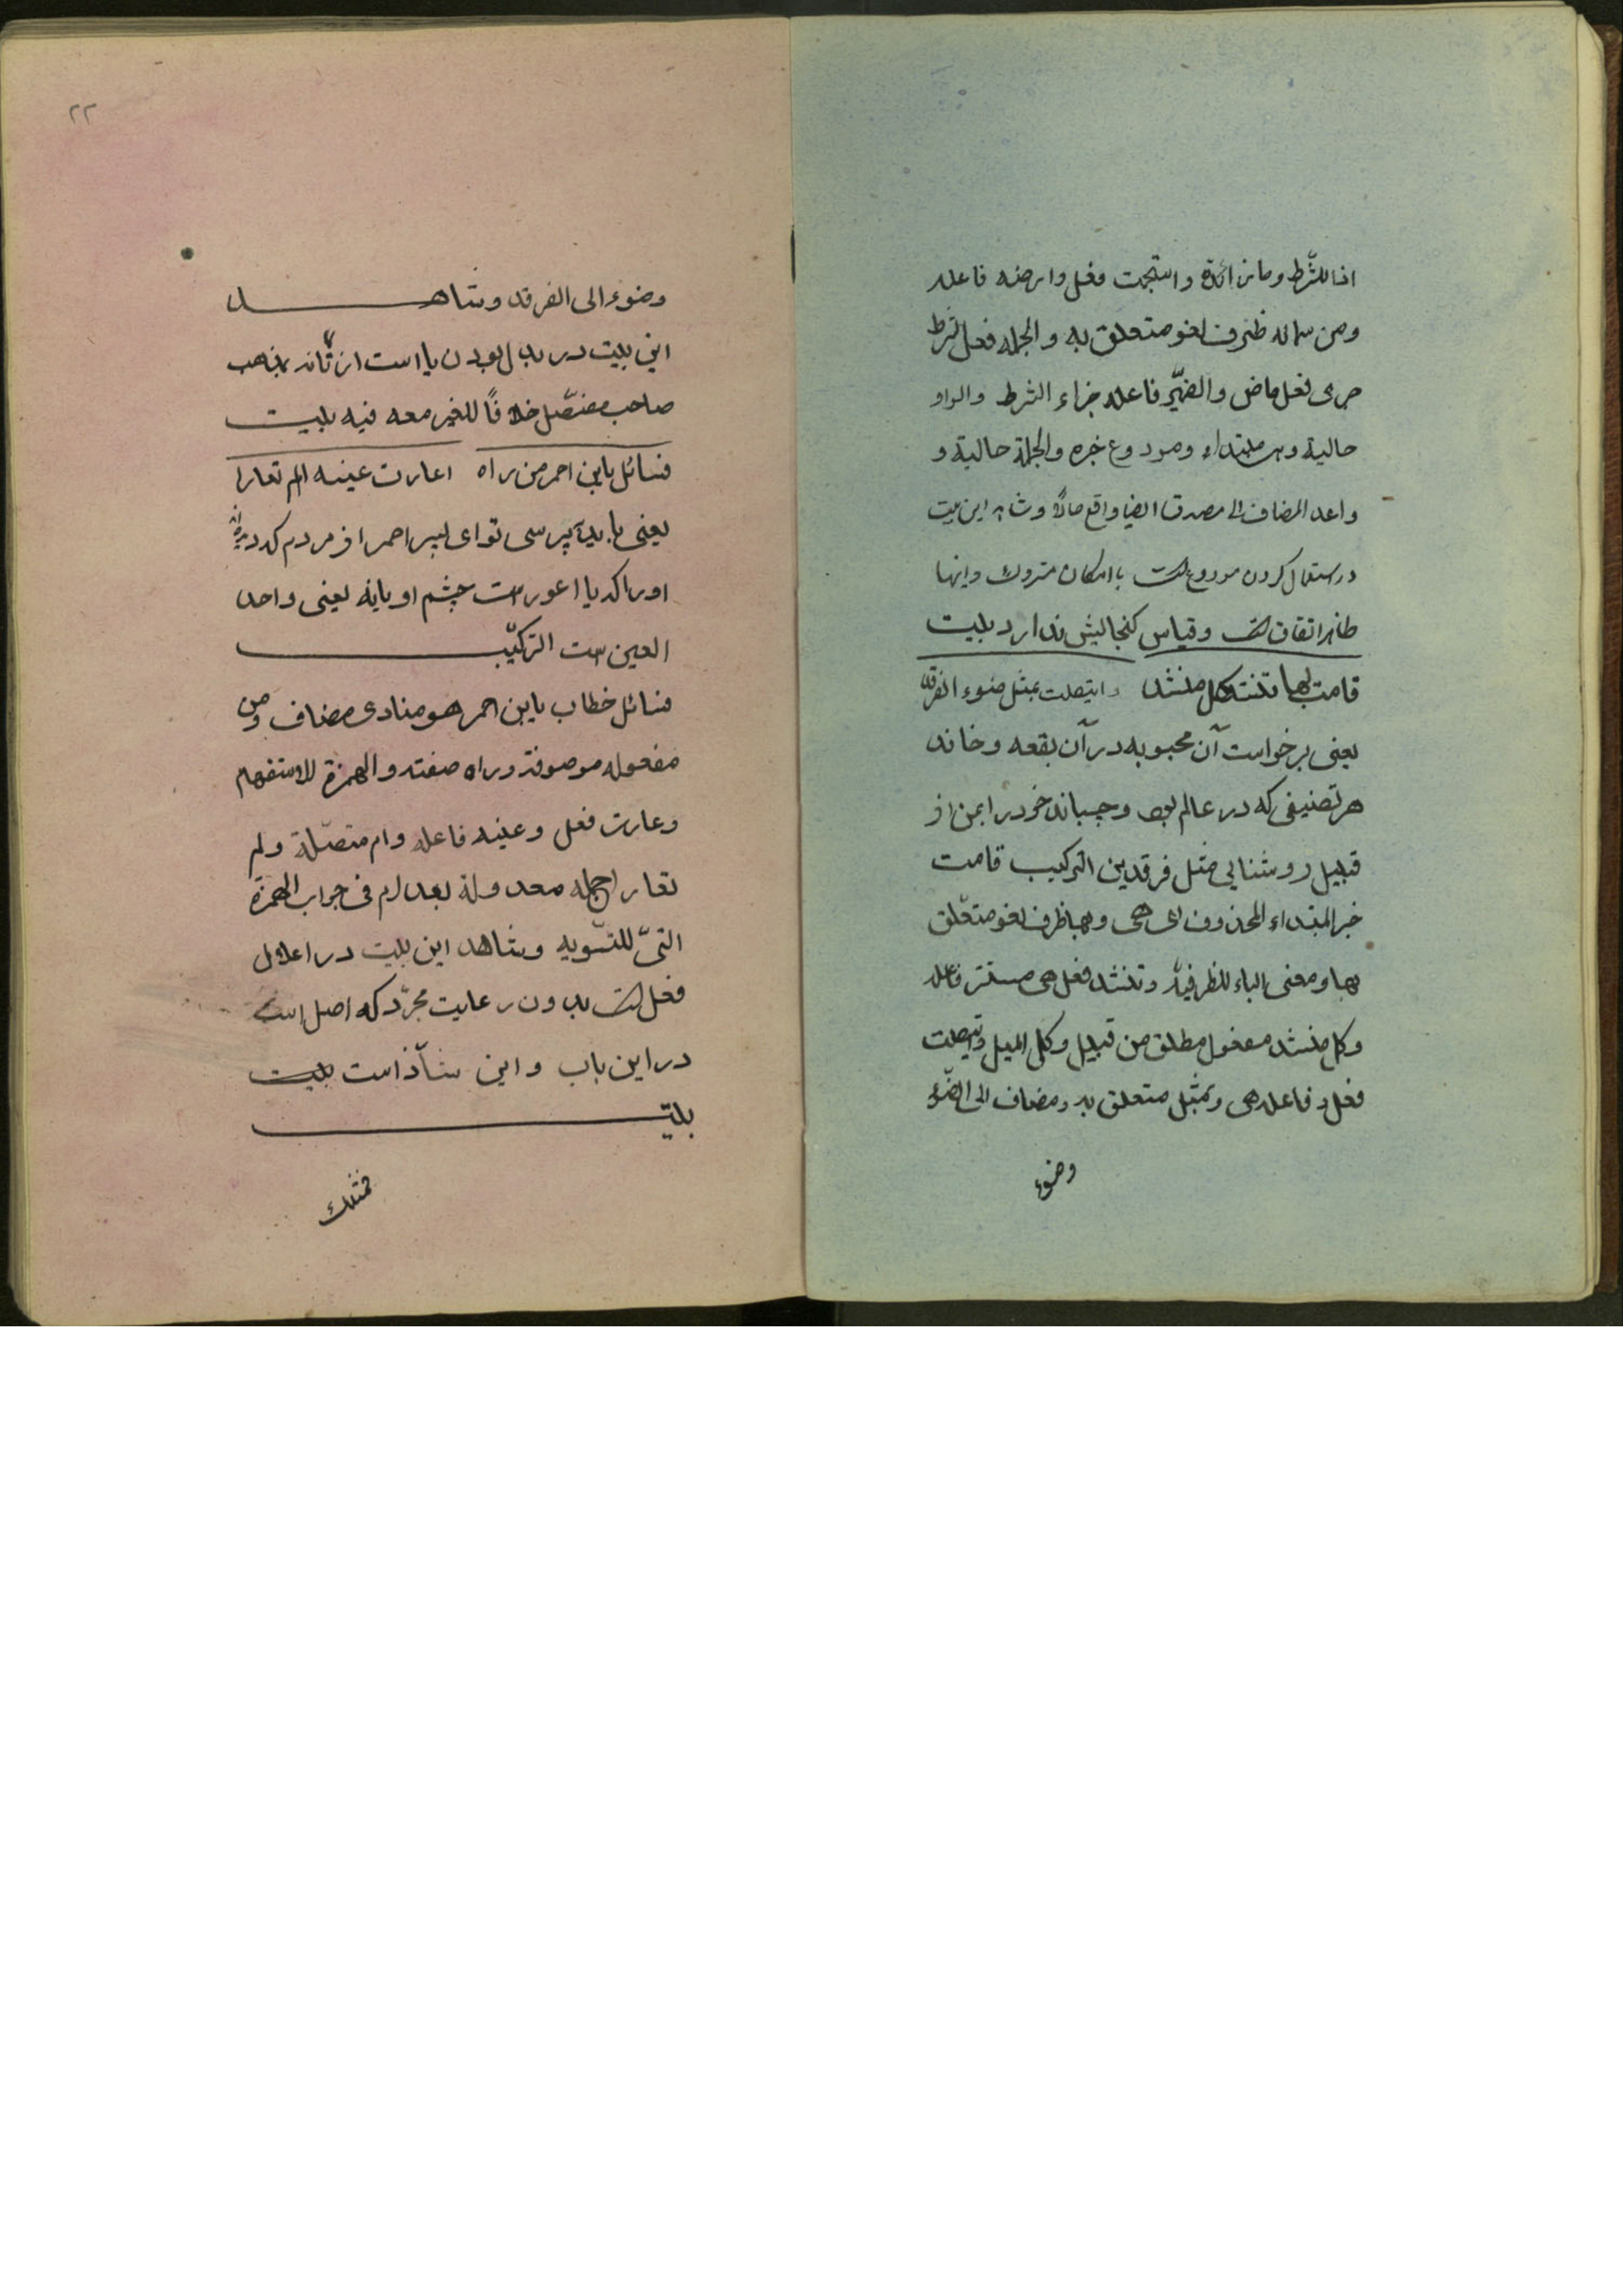 اذا للشّرط وما زائدة واستجمت فعل وارضه فاعله
ومن سمائه ظرف لغو متعلق به والجمله فعل الشرط
جرى فعل ماض والضمیّر فاعله جزاء الشرط والواو
حالية وهو مبتداء ومودوع خبره والجملة حالية و
واعد المضاف الى مصدق ايضا واقع حالا وشاهد این بیت
در استعمال کردن مودوع است با امکان متروك واینها
ظاهر اتفاق است وقیاس کنجایش ندارد بلیت
قامت بها تنشد کل منشد وايتصلت بمثل ضوء الفرقد
یعنی برخواست آن محبوبه در آن بقعه وخانه
هر تصنیفی که در عالم بود وچسباند خود را بمن از
قبیل روشنایی مثل فرقدین الترکیب قامت
خبر المبتداء المحذوف ای هی وبها ظرف لغو متعّلق
بها ومعنى الباء للظرفيّة وتنشد فعل هی مستتر فاعله
وکل منشد مفعول مطلق من قبیل وکل المیل وايتصلت
فعل وفاعله هی وبمثل متعلق به ومضاف الى الضّوء
وضوء
۲۲
وضوء الى الفرقد وشاهد
این بلیت در بدل بودن یا است از تاند بمذهب
صاحب مفصّل خلافًا للغیر معه فیه بلیت
فسائل باین احمر من راه اعارت عینه ام لم تعارا
یعنی باید بپرسی تو ای پسر احمر از مردم که دیده
اورا که یا اعور است چشم او یا نه یعنی واحد
العین است الترکیّب
فسائل خطاب باین احمر هو منادى مضاف ومن
مفعوله موصوفة وراه صفته والهمزة للاستفهام
وعارت فعل وعینه فاعله وام متصّلة ولم
تعارا جمله معدولة بعد ام فی جواب الهمزة
التیّ للتسّویه وشاهد این بلیت در اعلال
فعل است بدون رعایت مجرّد که اصل است
در این باب واین شاّذ است بلیت
بلیّت
فمثلك